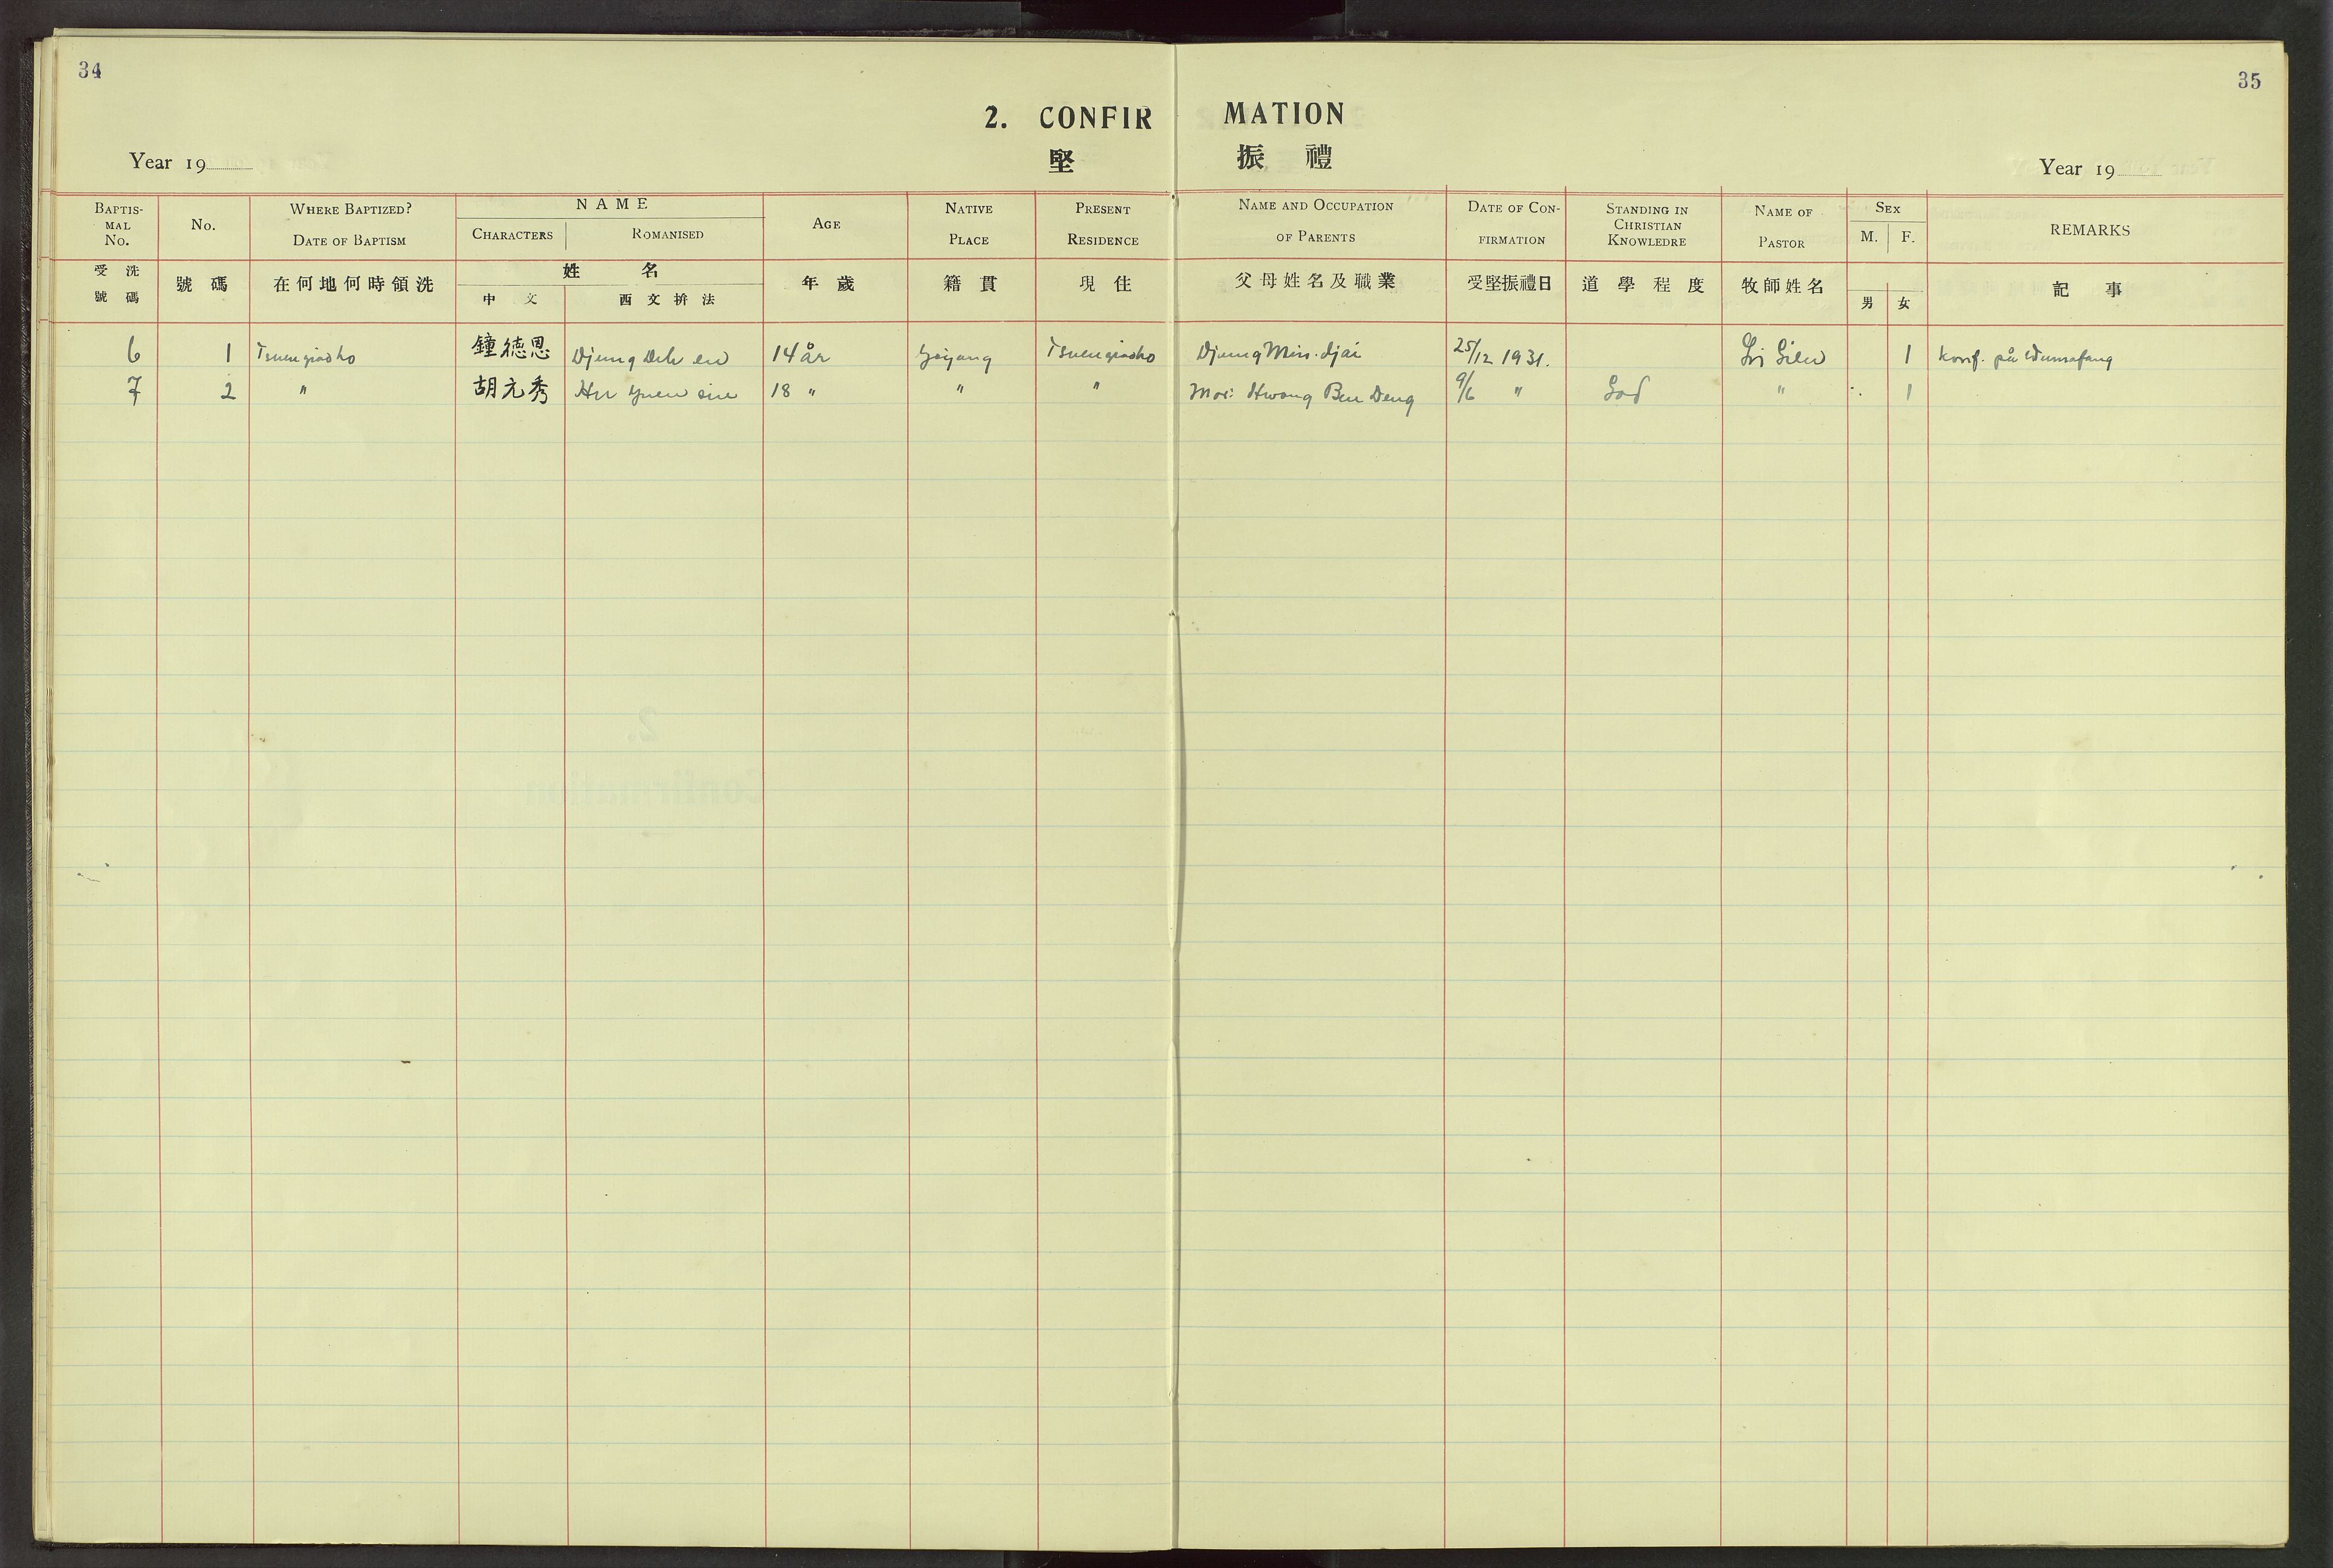 34
35
2. CONFIR MATION
堅 振 禮
Year 19
Year 19
BAPTIS-MAL No. No. WHERE BAPTIZED? DATE OF BAPTISM NAME CHARACTERS ROMANISED AGE NATIVE PLACE PRESENT RESIDENCE NAME AND OCCUPATION OF PARENTS DATE OF CON-FIRMATION STANDING IN CHRISTIAN KNOWLEDRE NAME OF PASTOR SEX M. F. REMARKS
受洗號碼 號碼 在何地何時領洗 姓名 中文 西文拚法 年歲 籍貫 現住 父母姓名及職業 受堅振禮日 道學程度 牧師姓名 男 女 記事
6 1 Tsuengiaoho 鐘德恩 Djung Deh en 14 år Yiyang Tsuengiaoho Djung Min-djai 25/12 1931. 1 konf. på
7 2 " 胡元秀 Hu Yuen siu 18 " " " Mor: Hwang Ben Deng 9/6 " God " 1